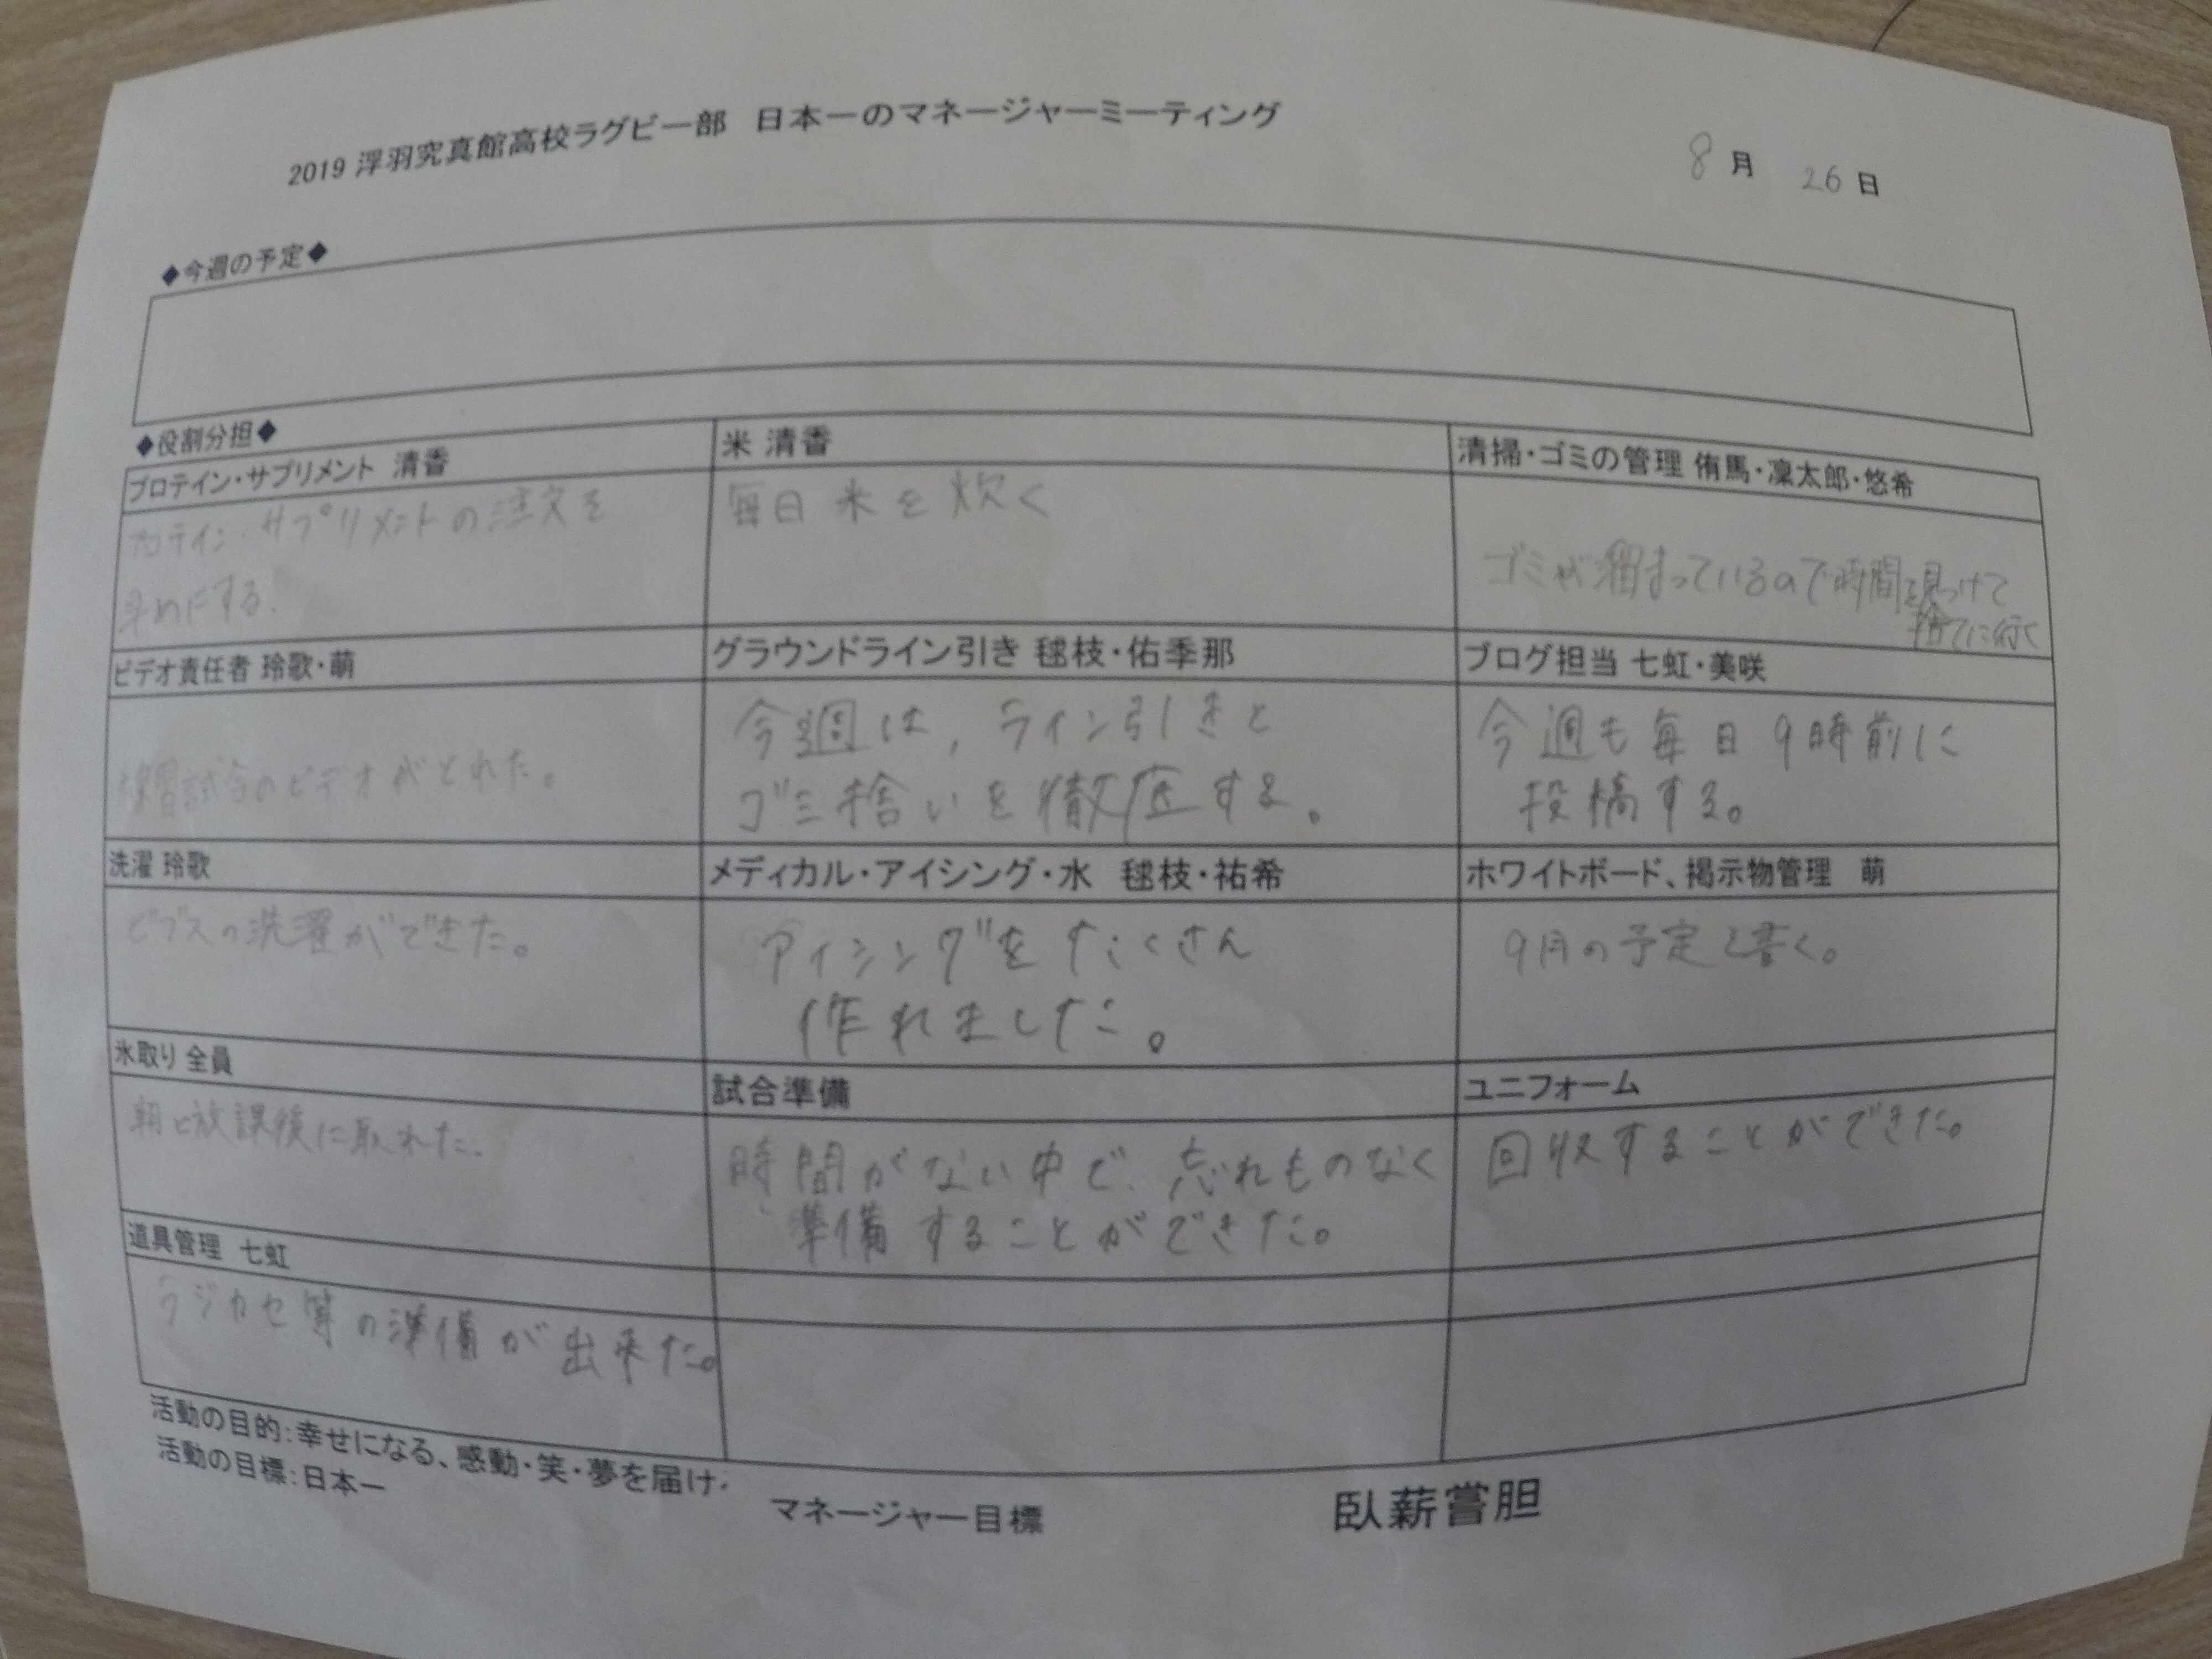 2019 浮羽究真館高校ラグビー部 日本一のマネージャーミーティング
8月 26日
◆今週の予定◆
◆役割分担◆
プロテイン・サプリメント 清香
プロテイン・サプリメントの注文を
早めにする.
米 清香
毎日米を炊く
清掃・ゴミの管理 侑馬・凜太郎・悠希
ゴミが溜まっているので時間を見つけて
捨てに行く
ビデオ責任者 玲歌・萌
練習試合のビデオがとれた。
グラウンドライン引き 毬枝・佑季那
今週は、ライン引きと
ゴミ拾いを徹底する。
ブログ担当 七虹・美咲
今週も毎日9時前に
投稿する。
洗濯 玲歌
ビブスの洗濯ができた。
メディカル・アイシング・水 毬枝・祐希
アイシングをたくさん
作れました。
ホワイトボード、掲示物管理 萌
9月の予定を書く。
氷取り 全員
朝と放課後に取れた.
試合準備
時間がない中で、忘れものなく
準備することができた。
ユニフォーム
回収することができた。
道具管理 七虹
ラジカセ等の準備が出来た。
活動の目的:幸せになる、感動・笑・夢を届け
活動の目標:日本一
マネージャー目標
臥薪嘗胆